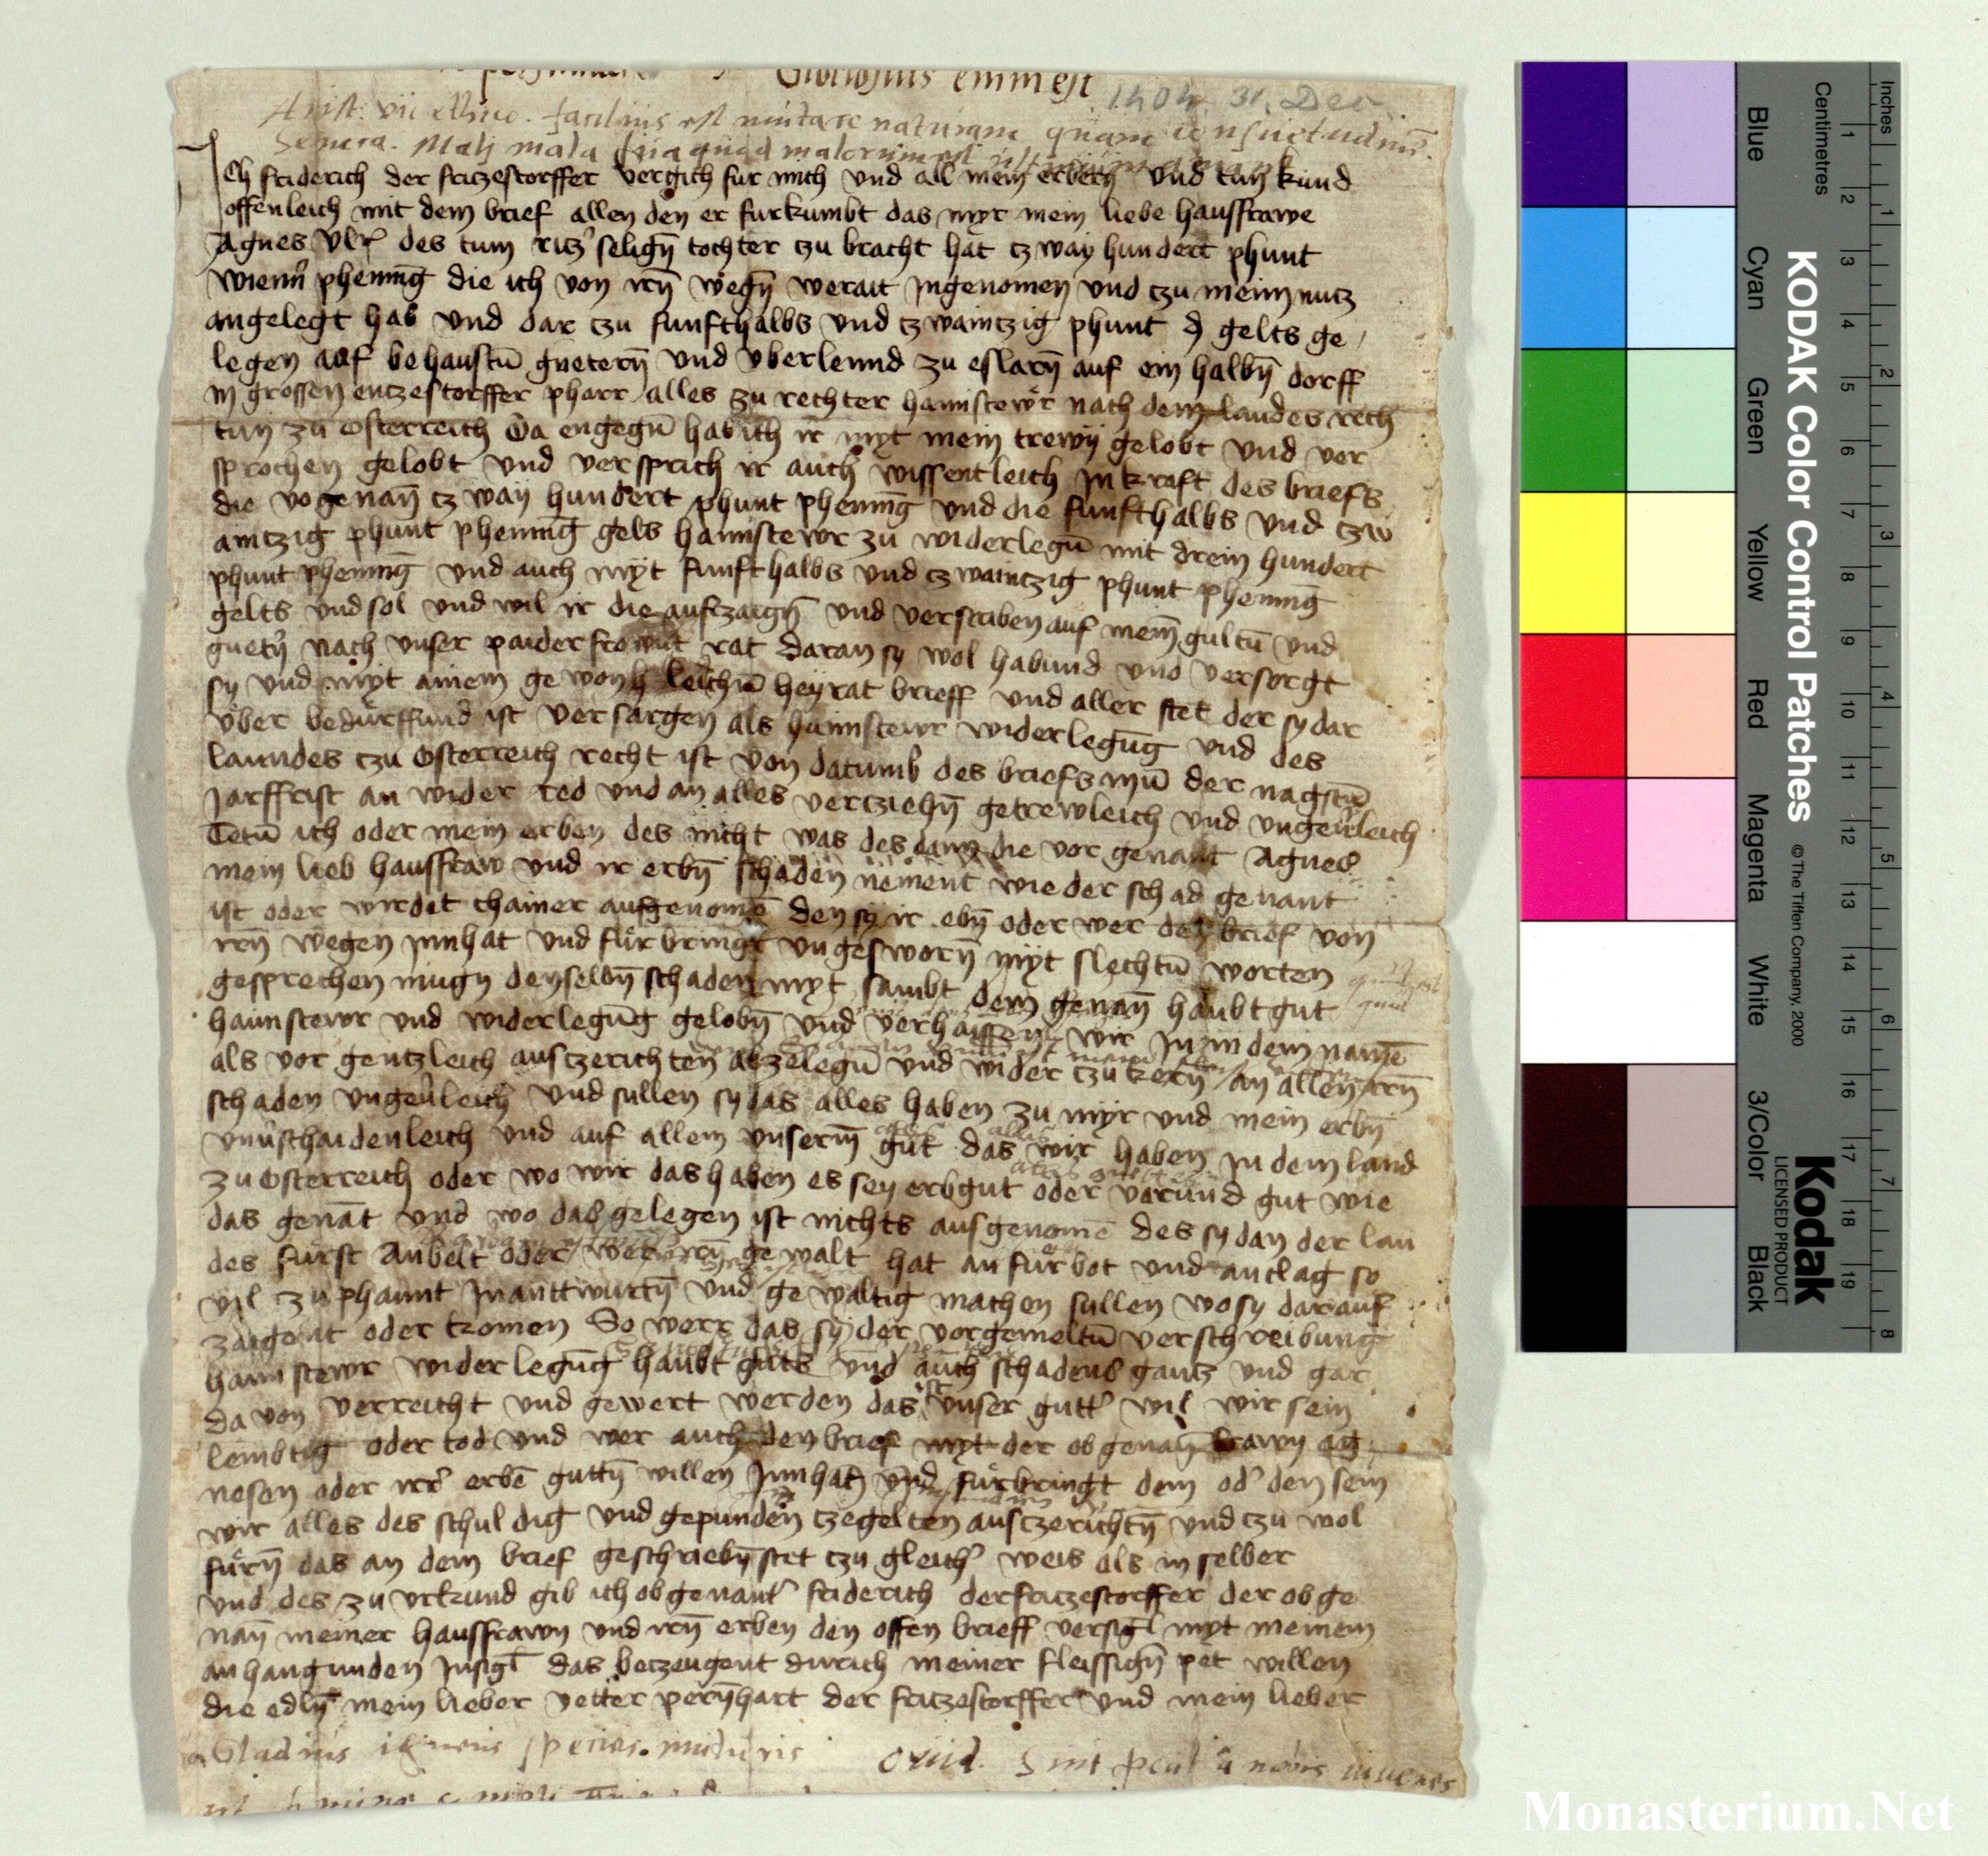 Gloriosius enim est
Arist: vii ethico. facilius est mutare naturam quam consuetudinē. 1404. 31. Dec.
Seneca. Malj mala
Ich friderich der fritzestorffer vergich fur mich vnd all mein erben vnd tun kund
offenleich mit dem brief allen den er furkumbt das myr mein liebe hausfrawe
Agnes Vlr des tum ritz seligñ tochter tzu bracht hat tzway hundert phunt
wienñ phenniḡ die ich von irñ wegñ werait Jngenomen vnd tzu meim nutz
angelegt hab vnd dar tzu funfthalbs vnd tzwaintzig phunt ₰ gelts ge
legen auf behaustū guetern̄ vnd vberlennd zu eslarn̄ auf ein halbn̄ dorff
in grossen entzestorffer pharr alles zu rechter haimstewr nach dem landes rech
tun zu Osterreich Da engegū hab ich ir myt mein trewn gelobt vnd ver
sprochen gelobt vnd versprich ir auch wissentleich Jn kraft des briefs
die vogenan̄ tzway hundert phunt phenniḡ vnd die funfthalbs vnd tzw
aintzig phunt phenniḡ gels haimstewr zu widerlegū mit drein hundert
phunt phenniḡ vnd auch myt funfthalbs vnd tzwaintzig phunt phenniḡ
gelts vnd sol vnd wil ir die aufzaign̄ vnd verscriben auf mein̄ gultū vnd
guetn̄ nach vnser paider frewnt rat daran sy wol habund vnd versorgt
sy vnd myt ainem gewonleichū heyrat brieff vnd aller stet der sy dar
vber bedurffund ist versargen als haimstewr widerlegūg vnd des
lanndes tzu Osterreich recht ist von datumb des briefs inn̄ der nagstū
Jarffrist an wider red vnd an alles vertziehn̄ getrewleich vnd vngeuleich
Tetū ich oder mein erben des nicht was des dann die vor genant Agnes
mein lieb hausfraw vnd ir erbn̄ schaden nement wie der schad genant
ist oder wirdet chainer aufgenomē den sy ir ebn̄ oder wer den brief von
irn̄ wegen jnnhat vnd furbringt vngesworn̄ myt slechtū worten
gesprechen mugn denselbn̄ schaden myt sambt dem genan̄ haubtgut
haimstewr vnd widerlegūg gelobn̄ vnd verhaissen wir Jn in dem namē
als vor gentzleich ausczerichten abzelegū vnd wider tzu kern̄ an allen irn̄
schaden vngeuleich vnd sullen sy das alles haben zu myr vnd mein erbn̄
vnuschaidenleich vnd auf allem vnserm gut das wir haben Jn dem land
zu Osterreich oder wo wir das haben es sey erbgut oder varund gut wie
das genāt vnd wo das gelegen ist nichts ausgenomē des sy dan der lan
des furst Anbelt oder wer irn̄ gewalt hat an furbot vnd anclag so
vil zu phannt Jnanttwurtn̄ vnd gewaltig machen sullen wo sy darauf
zaigent oder komen So werr das sy der vorgemeltū verschreibung
haimstewr widerlegūg haubt guts vnd auch schadens gantz vnd gar
da von verreicht vnd gewert werden das ist vnser gutt' wil wir sein
lembtig oder tod vnd wer auch den brief myt der obgenan̄ frawn ag
nesen oder irr' erbē guttn̄ willen Jnnhat vnd furbringt dem od' den sein
wir alles des schuldig vnd gepunden tzegelten ausczerichtn̄ vnd tzu wol
furn̄ das an dem brief geschriebn̄ stet tzu gleich' weis als in selber
vnd des zu vrkund gib ich obgenant' friderich der fritzestorffer der obge
nan̄ meiner hausfrawn vnd irn̄ erben den offen brieff versigl̄t myt meinem
anhangunden Jnsigl̄ das betzeugent durich meiner fleissign̄ pet willen
die edln̄ mein lieber vetter pernhart der fritzestorffer vnd mein lieber
Gladius species
Ovid. Sint a nobis
KODAK Color Control Patches
© The Tiffen Company, 2000
Kodak
LICENSED PRODUCT
Centimetres
Inches
Blue
Cyan
Green
Yellow
Red
Magenta
White
3/Color
Black
1 2 3 4 5 6 7 8 9 10 11 12 13 14 15 16 17 18 19
1 2 3 4 5 6 7 8
Monasterium.Net